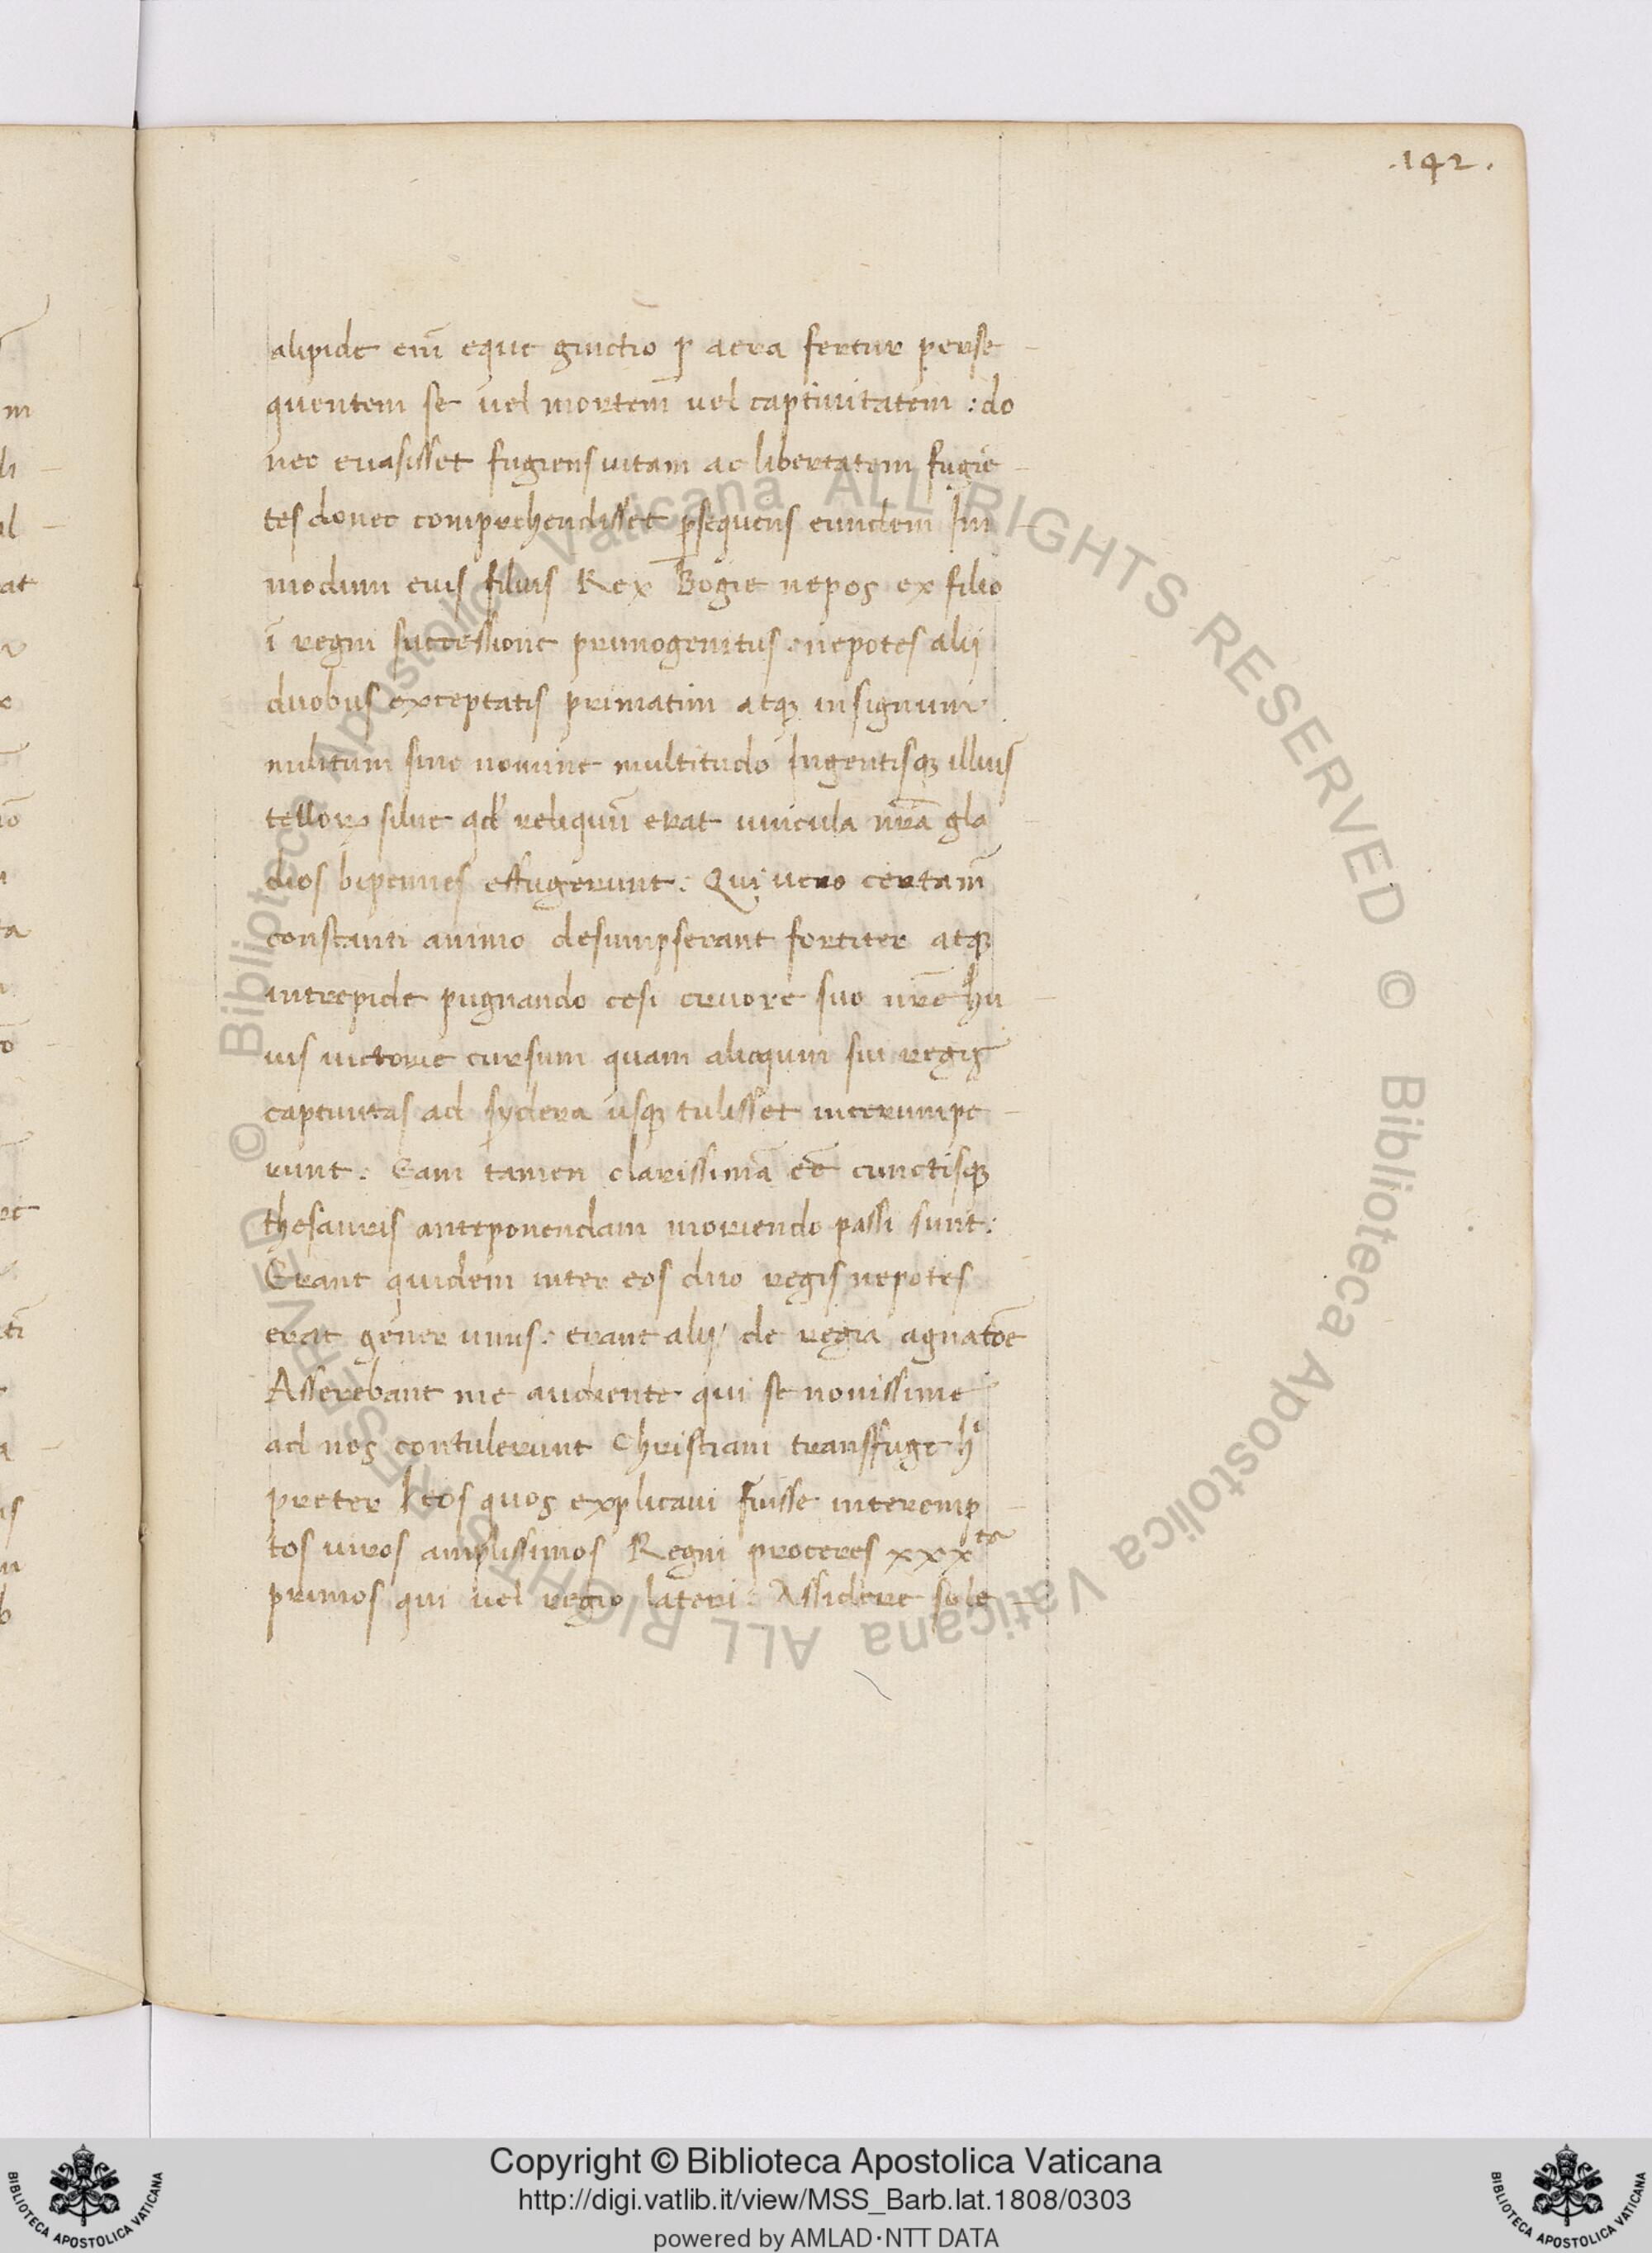 .142.
alipide eni᷃ eque guictio ꝑ aera fertur perse
quentem se uel mortem̄ uel captiuitatem : do
nec euasisset fugiens uitam ac libertatem fugie
tes donec comprehendisset ꝑsequens eundem Im
modum eius filius Rex Bogie nepos ex filio
ī regni successione primogenitus nepotes alij
duobus exceptatis primatim atqꝫ insignium
militum sine nomine multitudo Ingentisqꝫ illius
qd' reliquū erat uincula nrā gla
dios bipennes effugerunt : Qui uero certam̄
constanti animo desumpserant fortiter atqꝫ
intrepide pugnando cesi cruore suo nrē hu
ius uictorie cursum quam alioquin sui regis
captiuitas ad sydera usqꝫ tulisset interumpe
runt : Eam tamen clarissimā eē cunctisqꝫ
thesauris anteponendam moriendo passi sunt :
Erant quidem inter eos duo regis nepotes
erat gener unus : erant alij de regia agnatōe
Asserebant me audiente qui se nouissime
ad nos contulerunt Christiani transffuge
preter eos quos explicaui fuisse interemp
tos uiros amplissimos Regni proceres xxxta
primos qui uel regio lateri Assidere sole
© Biblioteca Apostolica Vaticana ALL RIGHTS RESERVED © Biblioteca Apostolica Vaticana ALL RIGHTS RESERVED
Copyright © Biblioteca Apostolica Vaticana
http://digi.vatlib.it/view/MSS_Barb.lat.1808/0303
powered by AMLAD·NTT DATA
BIBLIOTECA APOSTOLICA VATICANA
BIBLIOTECA APOSTOLICA VATICANA